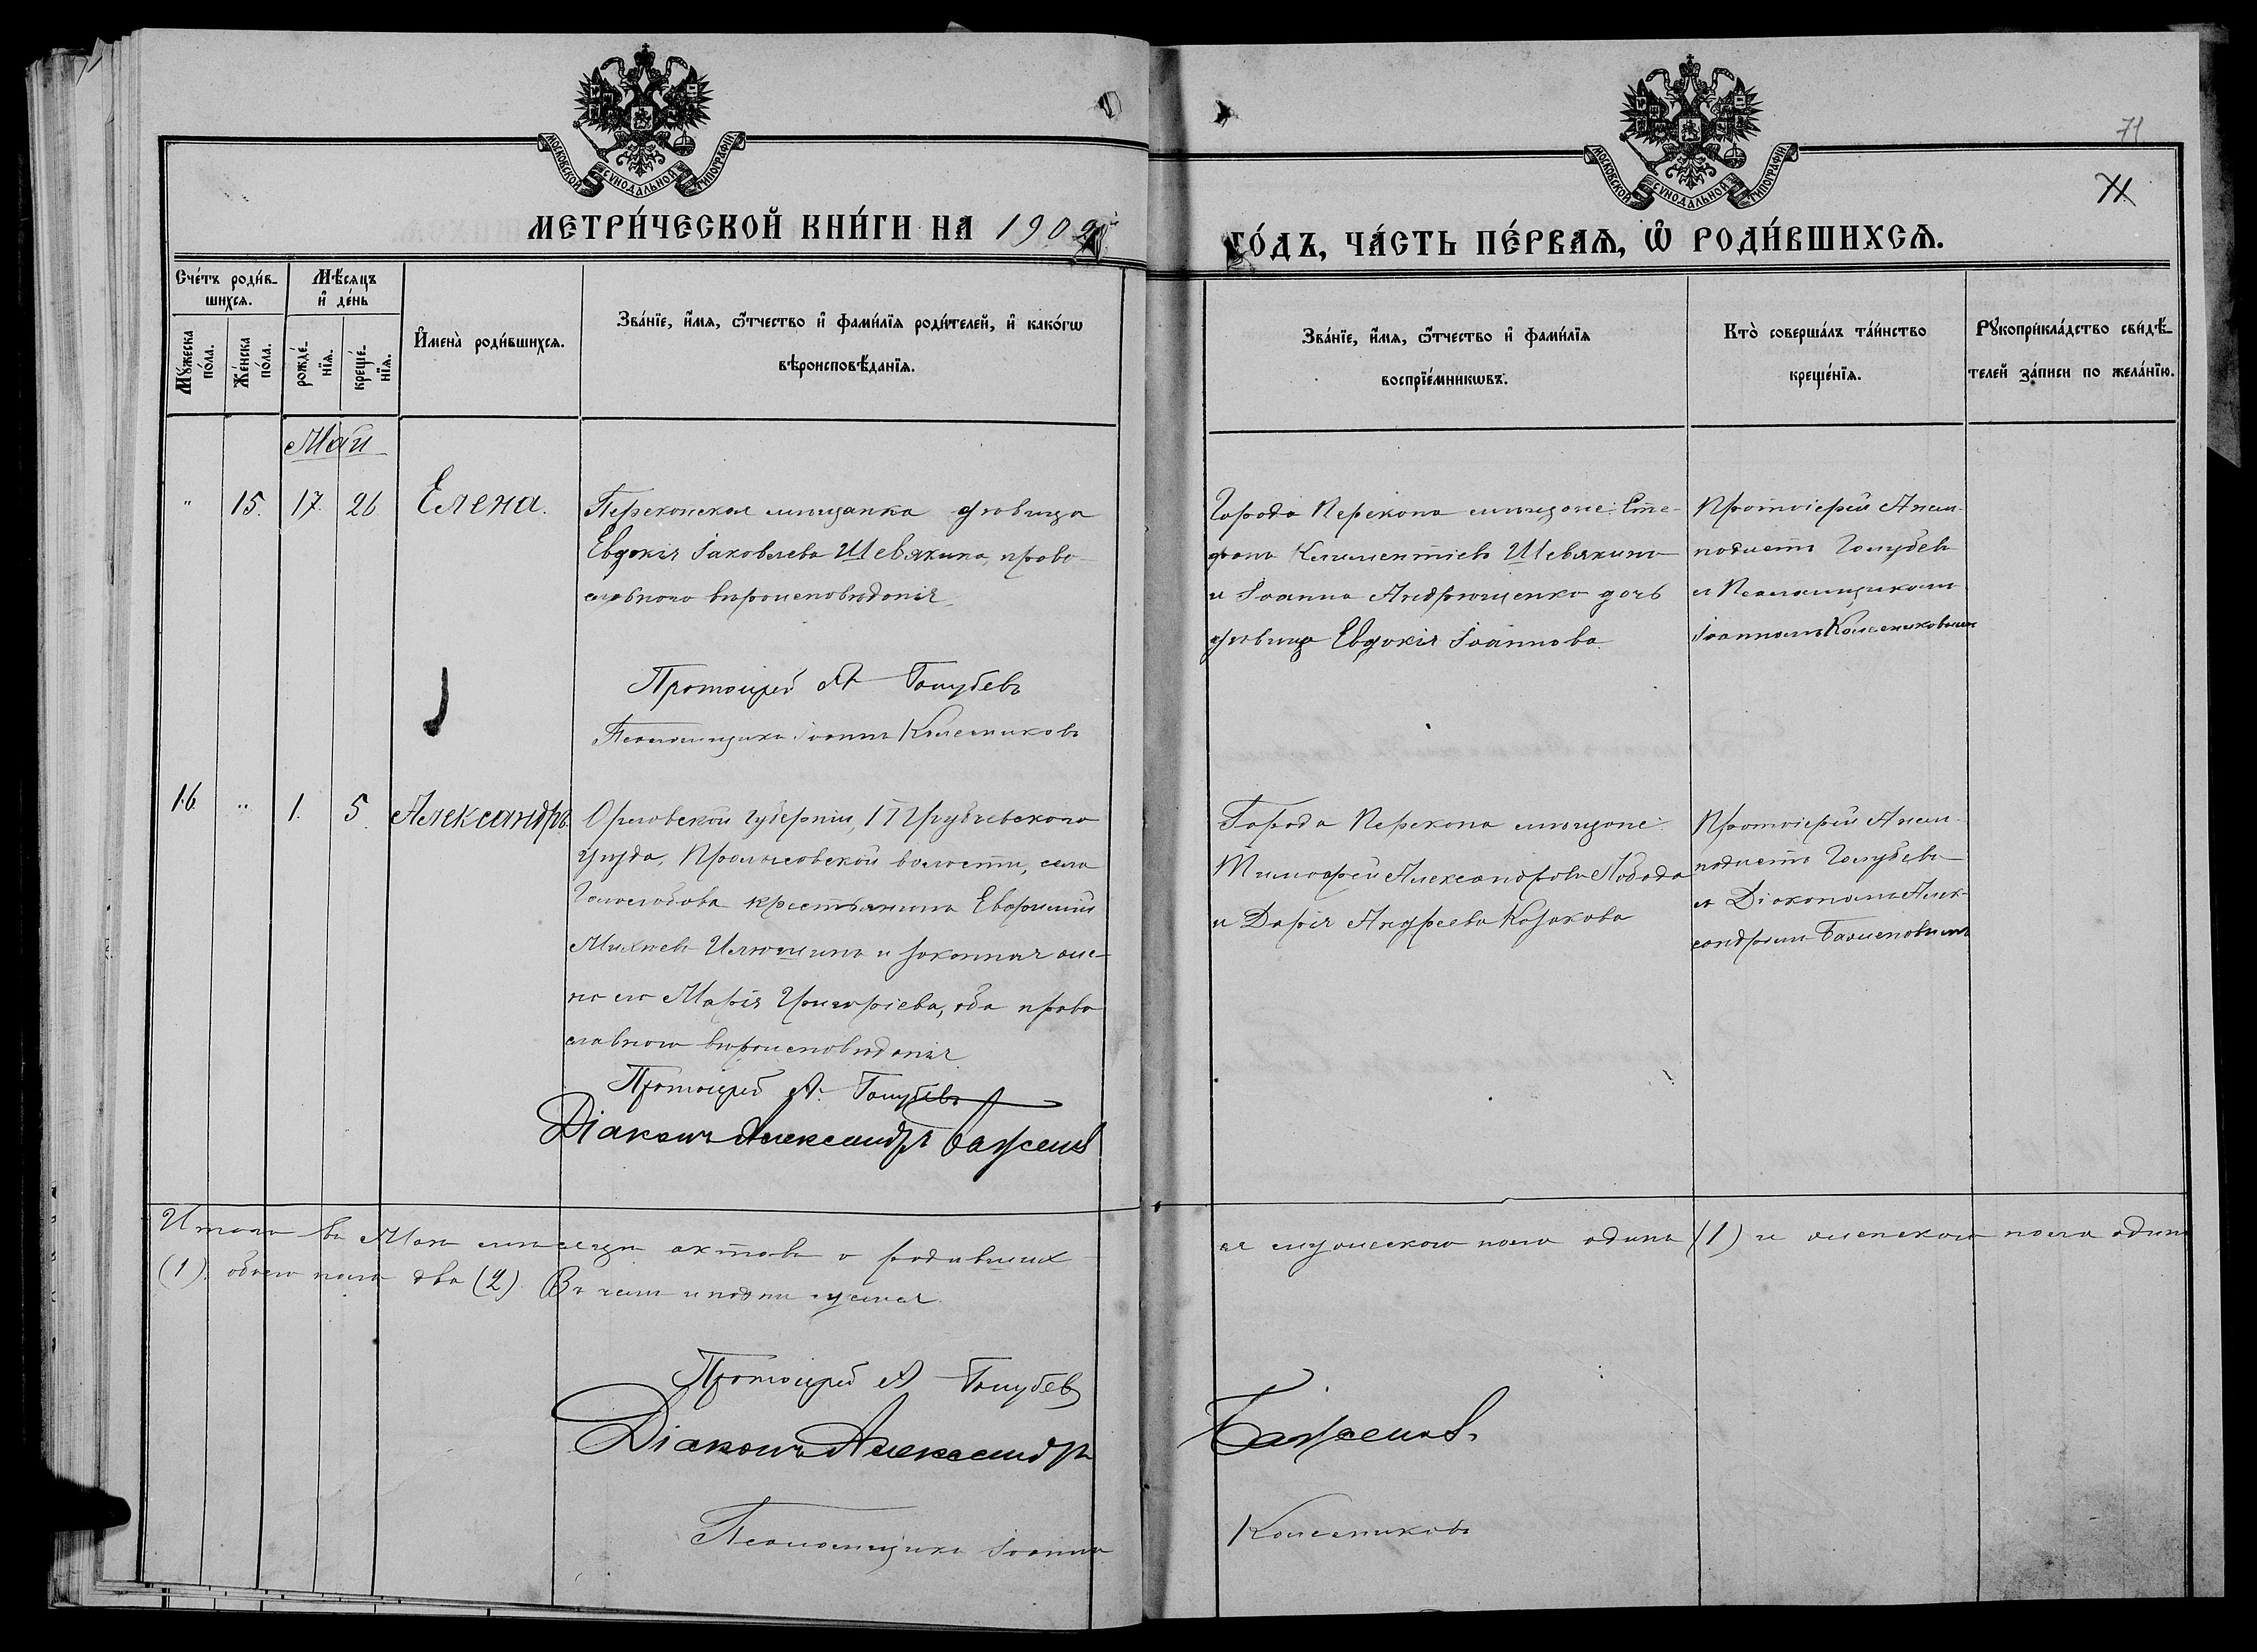 71
71
МОСКОВСКОЙ СѴНОДАЛЬНОЙ ТИПОГРАФІИ
МОСКОВСКОЙ СѴНОДАЛЬНОЙ ТИПОГРАФІИ
МЕТРИ́ЧЕСКОЙ КНИ́ГИ НА 1902
ГО́ДЪ, ЧА́СТЬ ПЕ́РВАѦ, Ѡ҆ РОДИ́ВШИХСѦ.
Сче́тъ роди́в-
шихсѧ.
Мѣ́сѧцъ
и҆ де́нь
Мꙋ́жеска
по́ла.
Же́нска
по́ла.
рожде́-
нїѧ.
креще́-
нїѧ.
И҆мена̀ роди́вшихсѧ.
Зва́нїе, и҆́мѧ, ѻ҆́тчество и҆ фами́лїѧ роди́телей, и҆ како́гѡ
вѣроисповѣ́данїѧ.
Зва́нїе, и҆́мѧ, ѻ҆́тчество и҆ фами́лїѧ
воспрїе́мникѡвъ.
Кто̀ соверша́лъ та́инство
креще́нїѧ.
Рꙋкоприкла́дство свидѣ́-
телей за́писи по жела́нїю.
Май
" 15. 17. 26 Елена.
Перекопская мѣщанка дѣвица
Евдокія Іаковлева Шевякина, право-
славного вѣроисповѣданія
Протоіерей А Голубевъ
Псаломщикъ Іоаннъ Колесниковъ
Города Перекопа мѣщане: Сте-
фанъ Климентіевъ Шевякинъ
и Іоанна Андрющенко дочь
дѣвица Евдокія Іоаннова.
Протоіерей Анем-
подистъ Голубевъ
съ Псаломщикомъ
Іоанномъ Колесниковымъ
16 " 1. 5. Александръ.
Орловской губерніи, Трубчевского
уѣзда, Промысовской волости, села
крестьянинъ Евфимій
Михѣевъ Илюшинъ и законная же-
на его Марія Григоріева, оба право
славного вѣроисповѣданія
Протоіерей А. Голубевъ
Діаконъ Александръ Баженов
Города Перекопа мѣщане:
Тимофей Александровъ Лобода
и Дарія Андреева Козакова
Протоіерей Анем-
подистъ Голубевъ
съ Діакономъ Алек-
сандромъ Баженовымъ
Итого въ Маѣ мѣсяцѣ актовъ о родивших
ся мужеского пола одинъ (1) и женского пола одинъ
(1). обоего пола два (2). Въ чемъ и подписуемся
Протоіерей А Голубев
Діаконъ Александръ
Баженов.
Псаломщикъ Іоаннъ
Колесниковъ